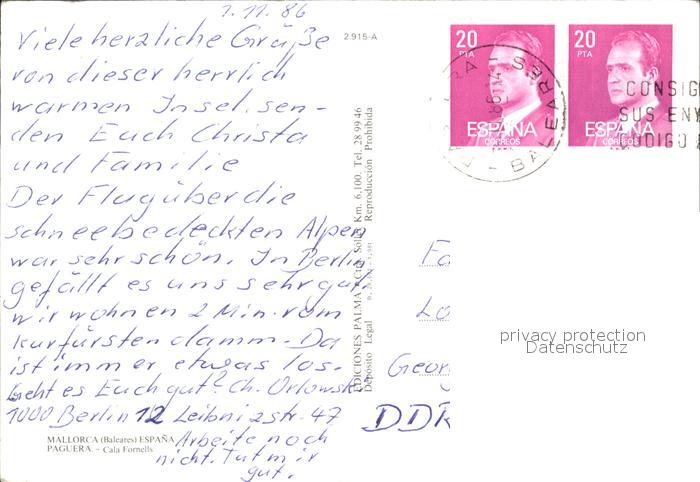 1.11.86
Viele herzliche Grüße
von dieser herrlich
warmen Insel. sen-
den Euch Christa
und Familie
Der Flug über die
schneebedeckten Alpen
war sehr schön. In Berlin
gefällt es uns sehr gut.
wir wohnen 2 Min. vom
Kurfürstendamm. Da
ist immer etwas los.
Geht es Euch gut? Ch. Orlowski
1000 Berlin 12 Leibnizstr. 47
Arbeite noch
nicht. Tut mir
gut.
MALLORCA (Baleares) ESPAÑA
PAGUERA. - Cala Fornells
2.915-A
EDICIONES PALMA - Ctra. Sóller Km. 6,100. Tel. 28 99 46
Depósito Legal Reproducción Prohibida
20 PTA
ESPAÑA
CORREOS
20 PTA
ESPAÑA
CORREOS
BALEARES
CONSIG
SUS ENV
CODIGO
Fa
Lo
Georg
DDR
privacy protection
Datenschutz